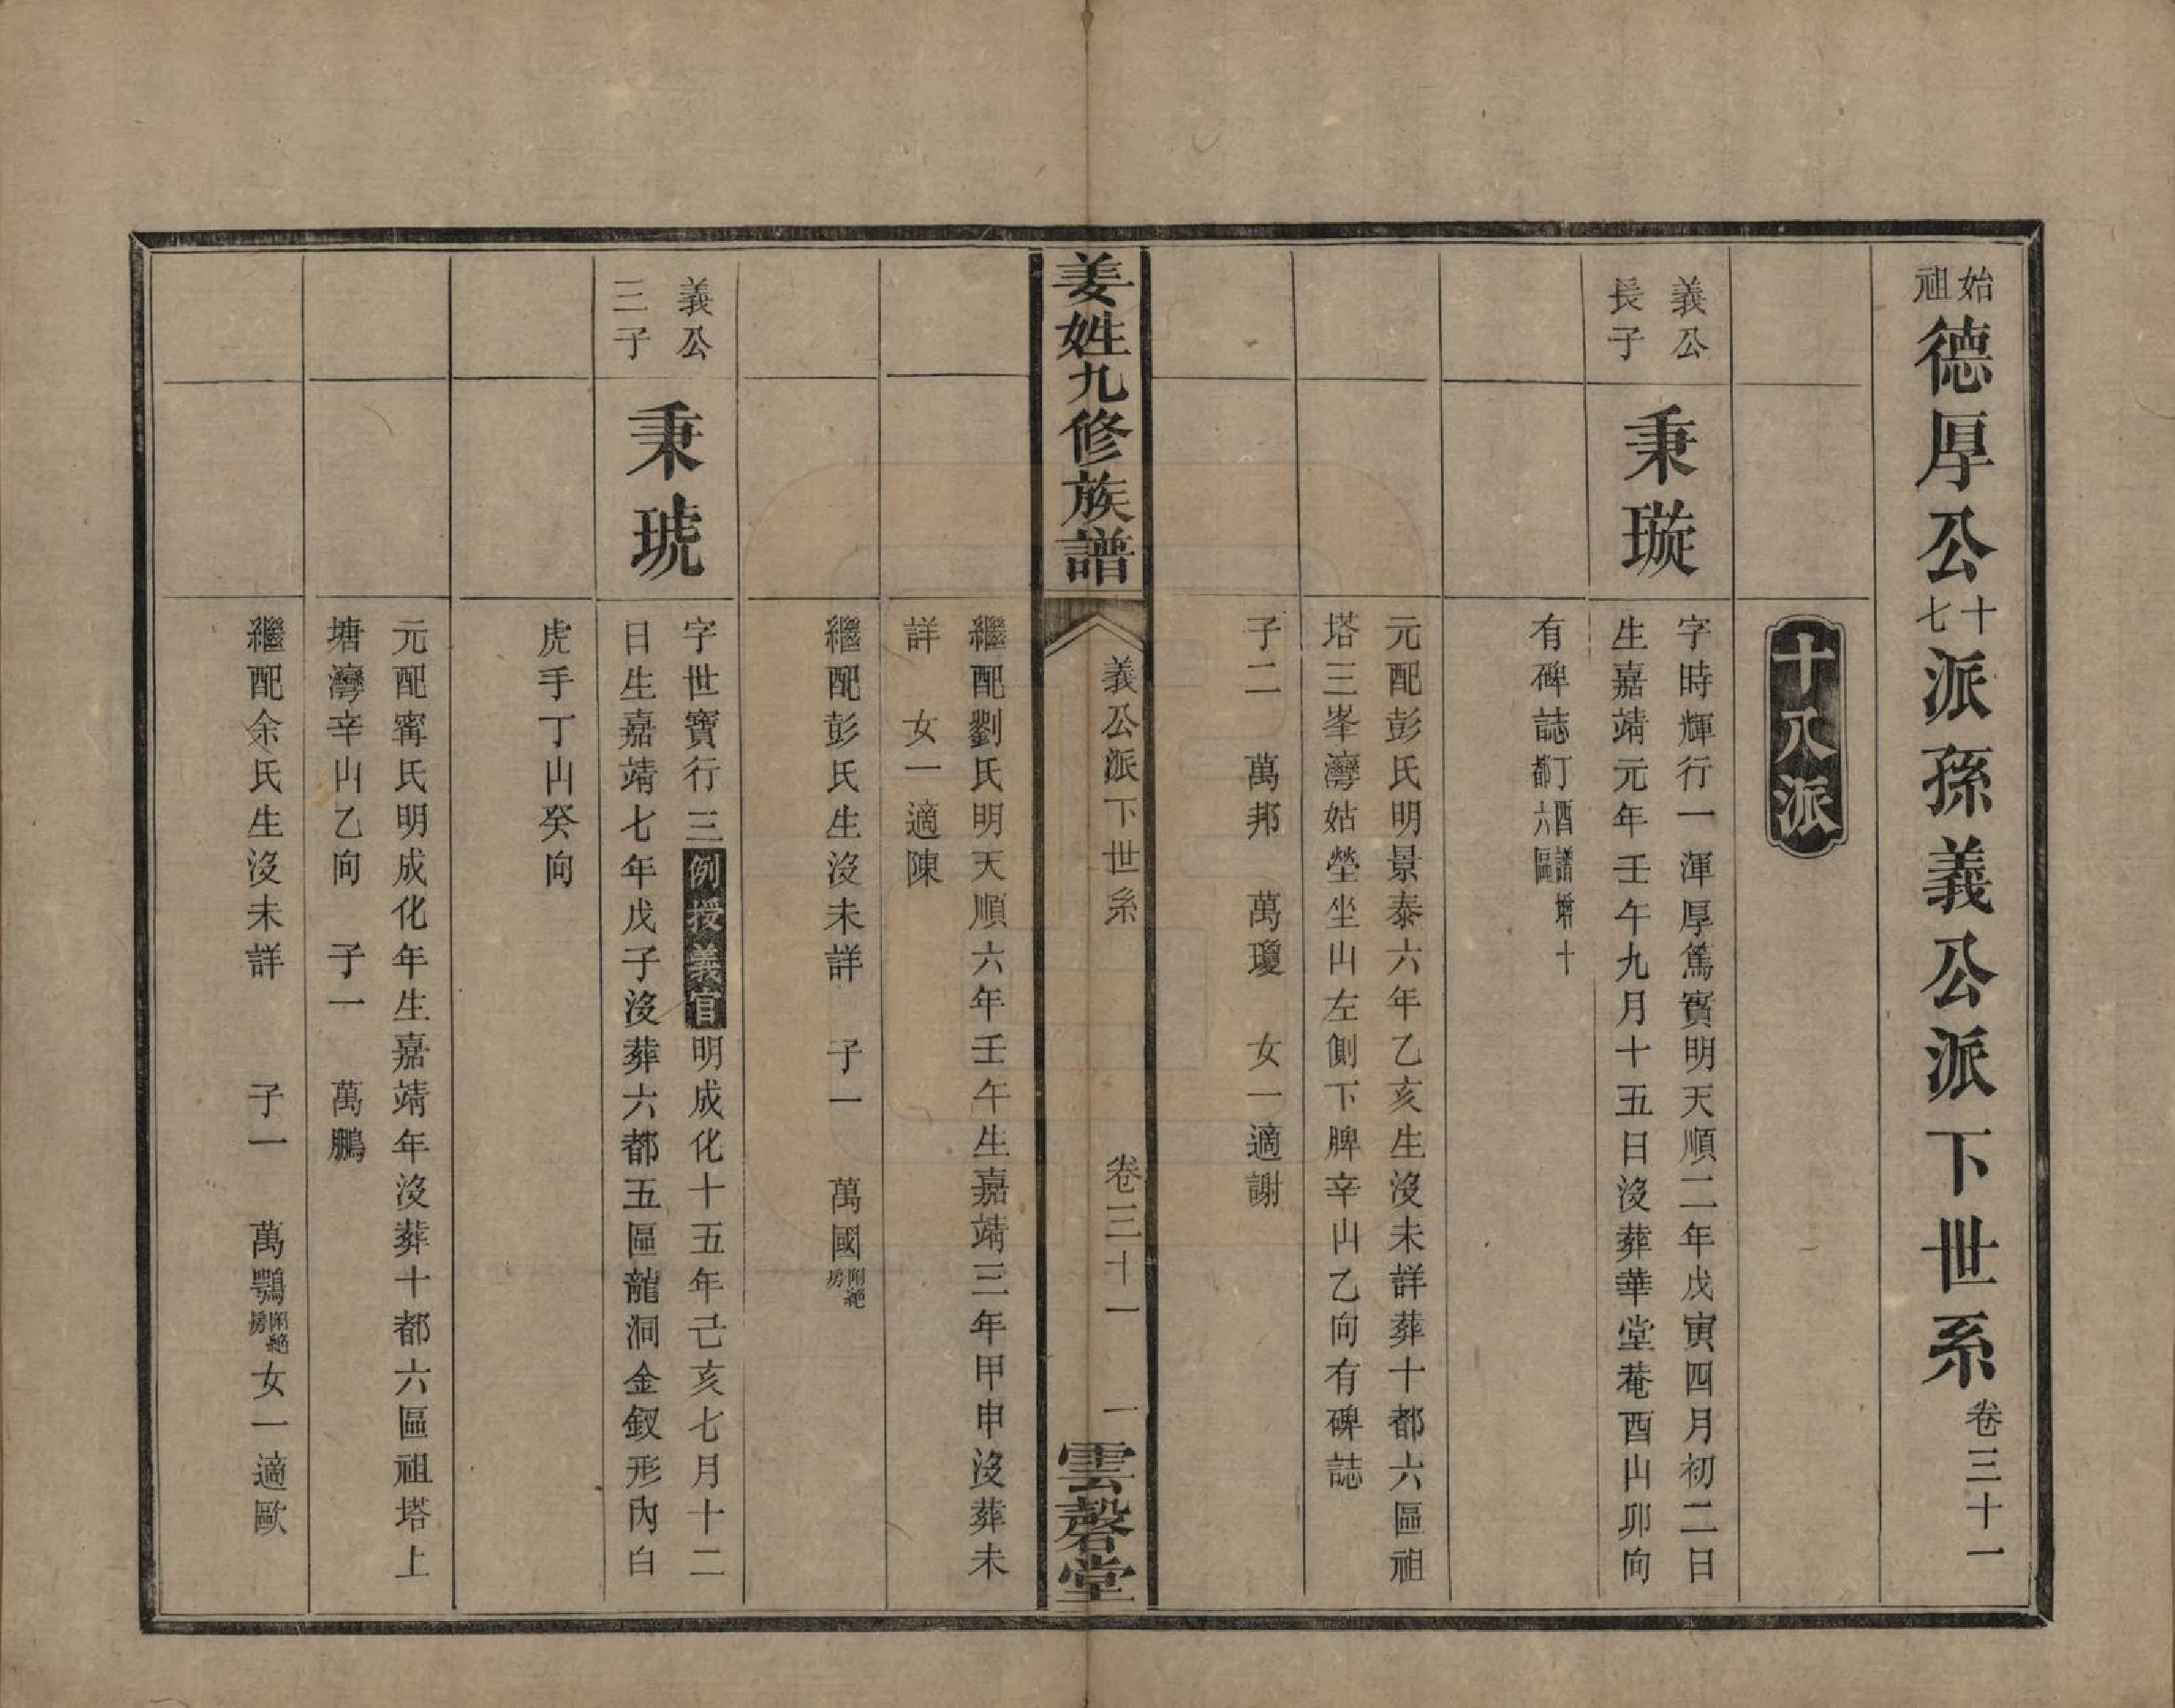 始祖德厚公十七派孫義公派下世系卷三十一
十八派
義公
長子
秉璇
字時輝行一渾厚篤實明天順二年戊寅四月初二日
生嘉靖元年壬午九月十五日沒葬華堂菴酉山卯向
有碑誌丁酉譜增十都六區
元配彭氏明景泰六年乙亥生沒未詳葬十都六區祖
塔三峯灣姑塋坐山左側下脾辛山乙向有碑誌
子二 萬邦 萬瓊 女一適謝
姜姓九修族譜
義公派下世系
卷三十一
一
雲磬堂
繼配劉氏明天順六年壬午生嘉靖三年甲申沒葬未
詳 女一適陳
繼配彭氏生沒未詳 子一 萬國附絕房
義公
三子
秉琥
字世寶行三例授義官明成化十五年己亥七月十二
日生嘉靖七年戊子沒葬六都五區龍洞金釵形內白
虎手丁山癸向
元配甯氏明成化年生嘉靖年沒葬十都六區祖塔上
塘灣辛山乙向 子一 萬鵬
繼配余氏生沒未詳 子一 萬鶚附絕房女一適歐